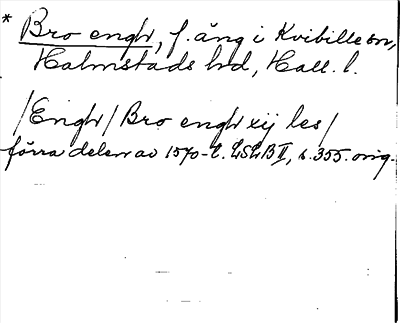 * Bro engh, f. äng i Kvibille sn,
Halmstads hd, Hall. l.
/Engh/ Bro engh xij les/
förra delen av 1570-t. LSLB II, s. 355. orig.